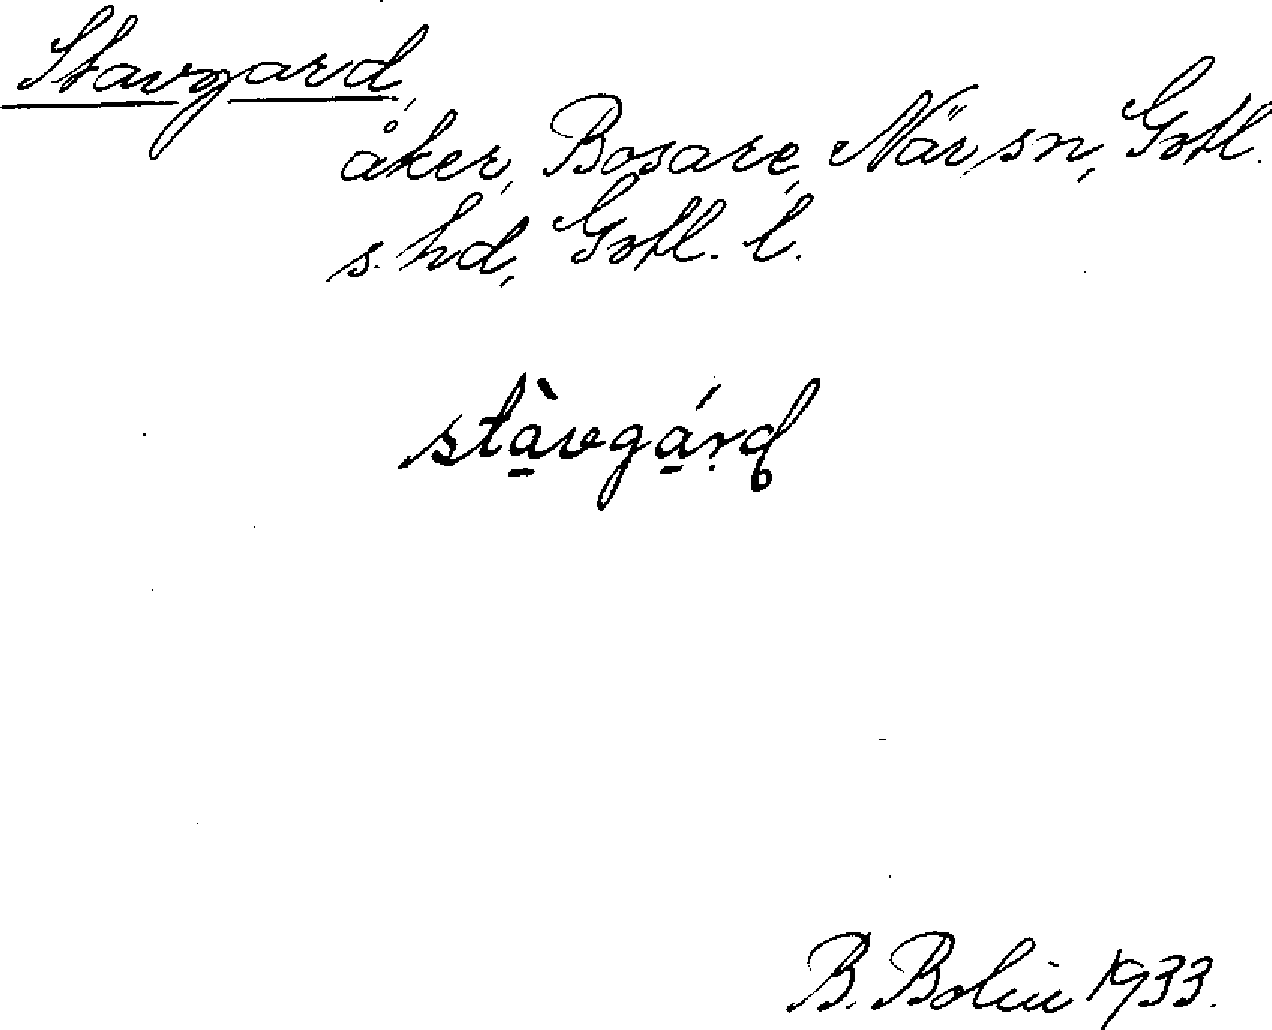 Stavgard,
åker, Bosare, När sn, Gotl.
s. hd, Gotl. l.
stàvgárd
B. Bolin 1933.